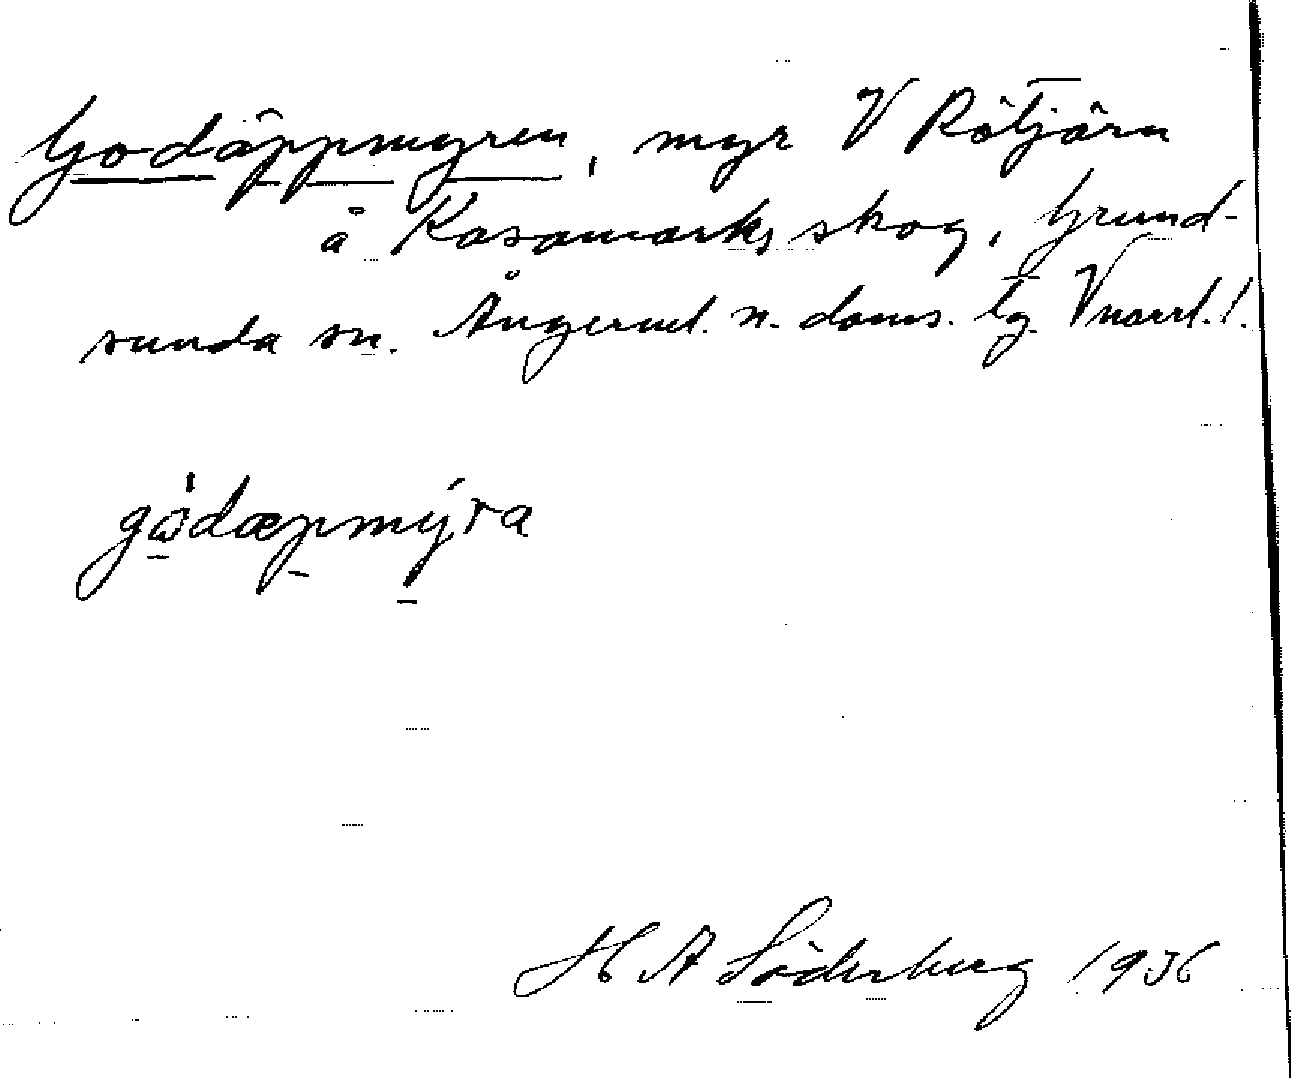 Godäppmyren, myr V Rötjärn
å Kasamarks skog, Grund-
sunda sn. Ångerml. n. doms. lg. Vnorrl. l.
gωdæpmýra
H A Söderberg 1936